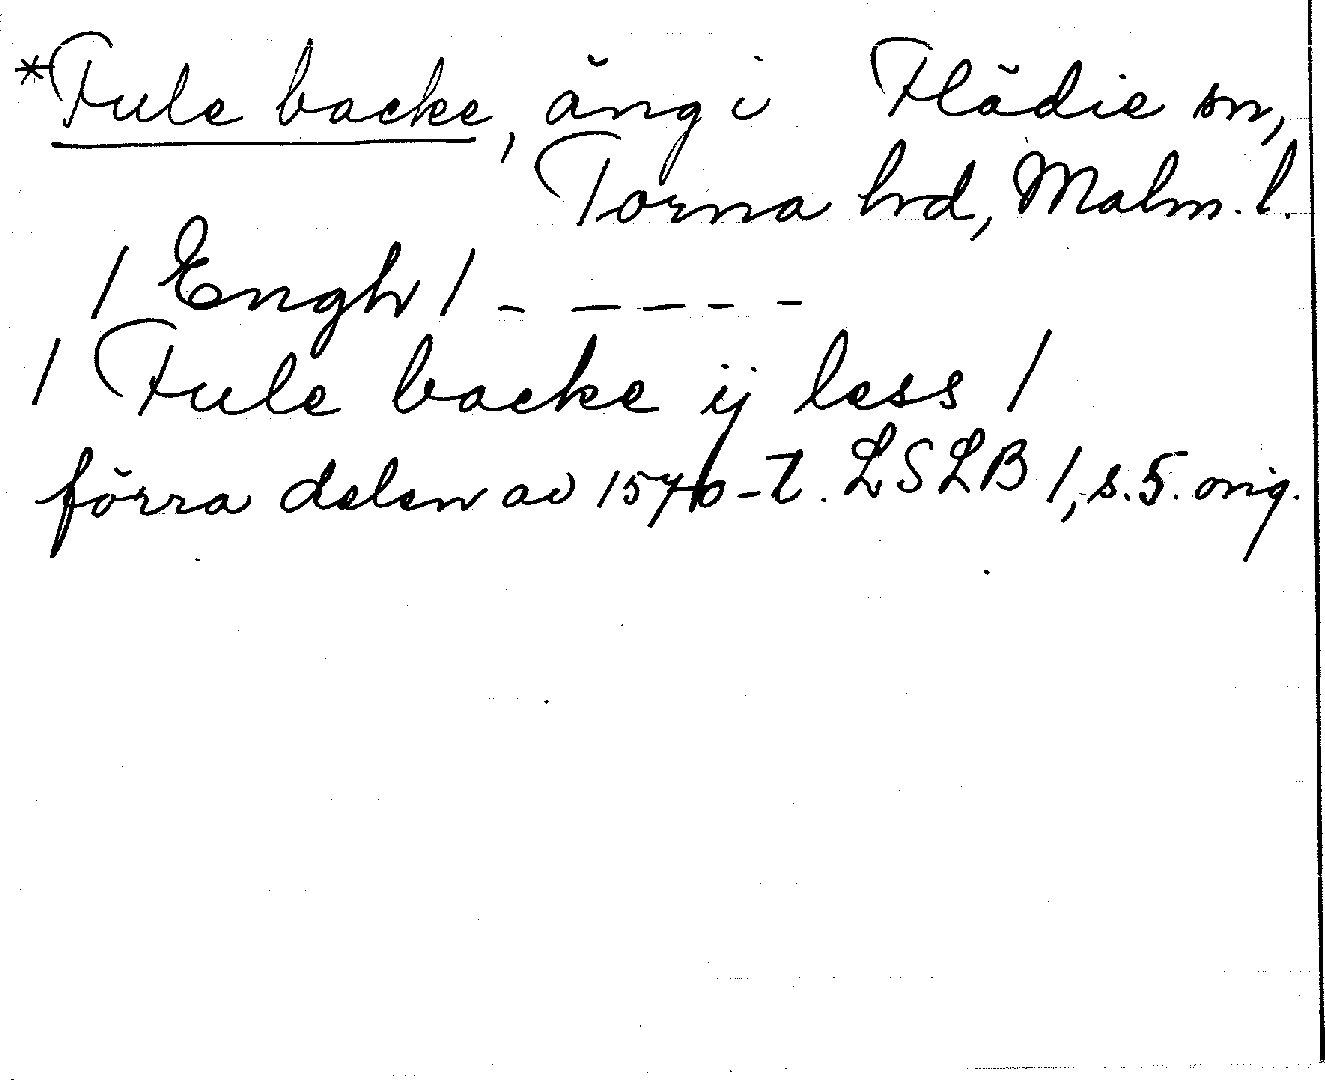 *Fule backe, äng i Flädie sn,
Torna hrd, Malm. l.
/ Engh / - - - - -
/ Fule backe ij less /
förra delen av 1570-t. LSLB 1, s. 5. orig.